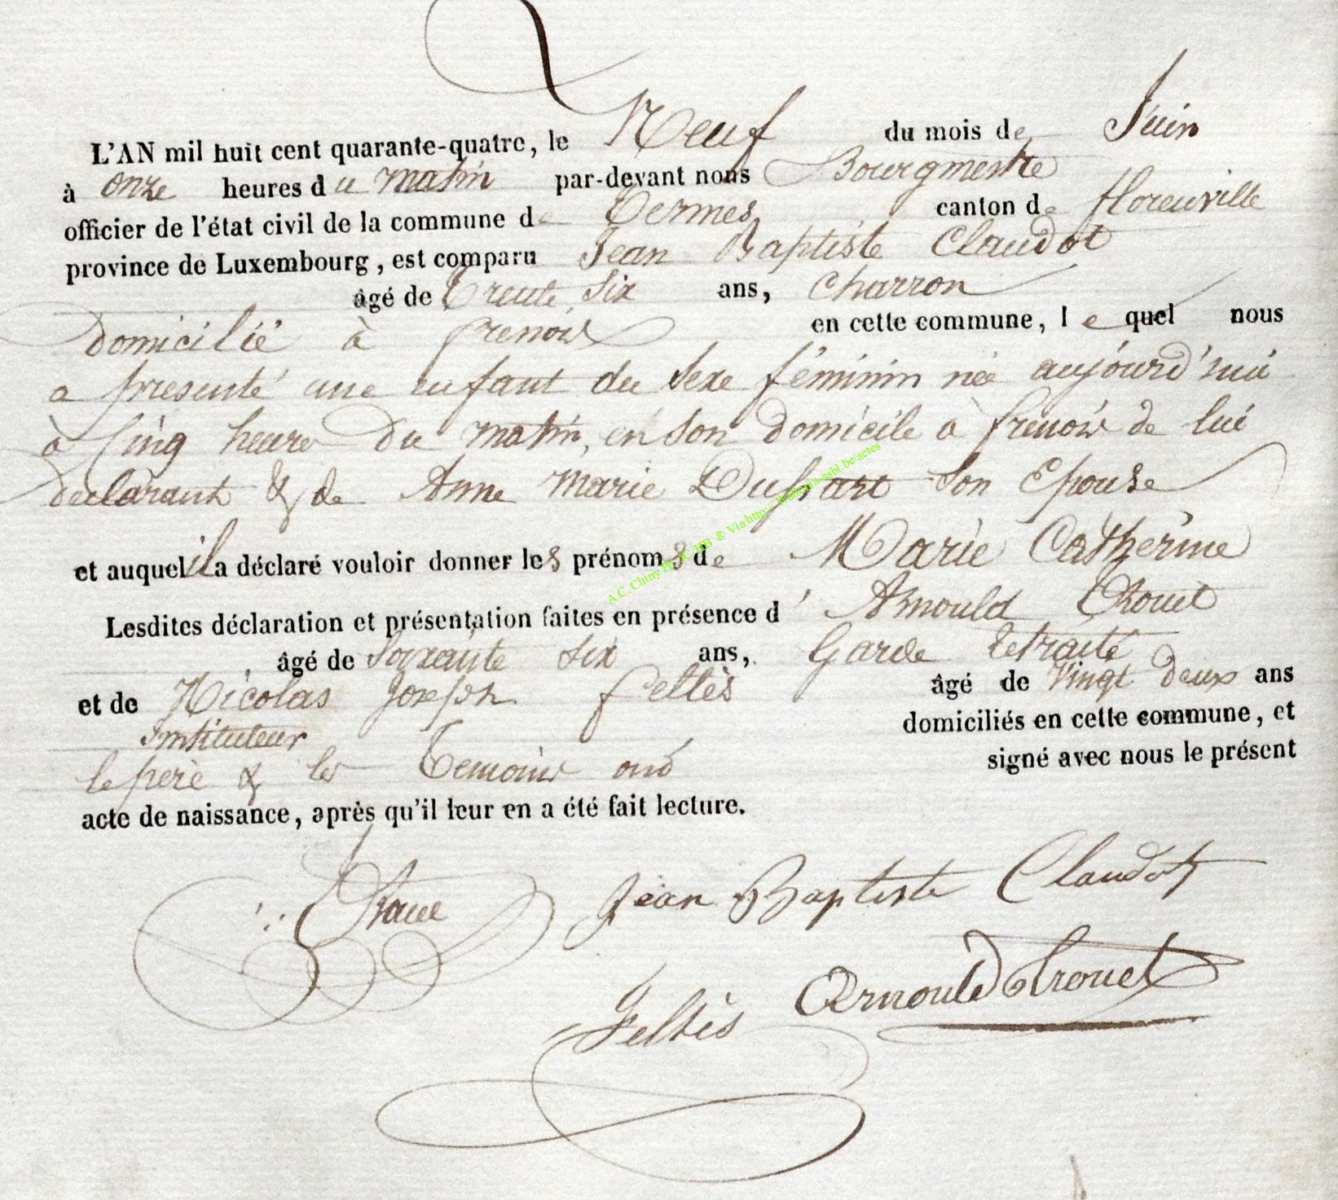 L'AN mil huit cent quarante-quatre, le Neuf du mois de Juin
à onze heures du matin par-devant nous Bourgmestre
officier de l'état civil de la commune de Termes canton de florenville
province de Luxembourg, est comparu Jean Baptiste Claudot
âgé de Trente Six ans, Charron
Domicilié à frenois en cette commune, lequel nous
a presenté une enfant du Sexe féminin née aujourd'hui
à Cinq heures Du matin, en Son domicile à frenois de lui
declarant & de Anne Marie Dufrart Son Epouse
et auquel il a déclaré vouloir donner les prénoms de Marie Catherine
Lesdites déclaration et présentation faites en présence d' Arnould Trouet
âgé de Soixante Six ans, Garde retraité
et de Nicolas Joseph feltès âgé de Vingt Deux ans
Instituteur domiciliés en cette commune, et
le pere & les Temoins ont signé avec nous le présent
acte de naissance, après qu'il leur en a été fait lecture.
Jean Baptiste Claudot
Feltès Arnould Trouet